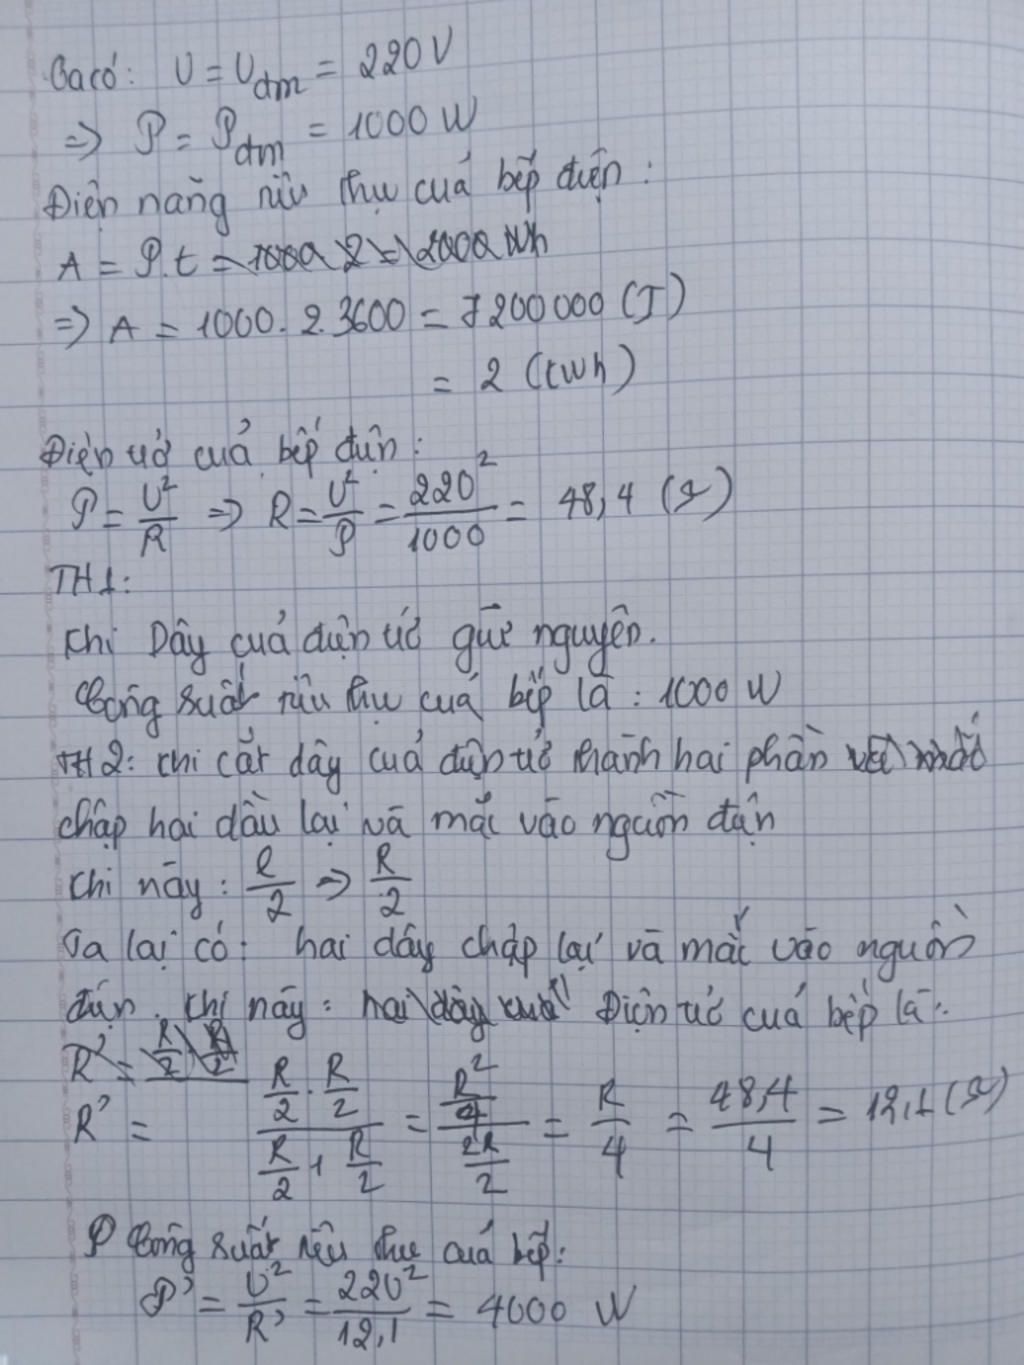 Ta có: U = Uđm = 220V
=> P = Pđm = 1000 W
Điện năng tiêu thụ của bếp điện:
A = P.t = 1000.2 = 2000 Wh
=> A = 1000.2.3600 = 7200000 (J)
= 2 (kWh)
Điện trở của bếp điện:
P = U²/R => R = U²/P = 220²/1000 = 48,4 (Ω)
TH1:
Khi Dây của điện trở giữ nguyên.
Công suất tiêu thụ của bếp là: 1000 W
TH2: Khi cắt dây của điện trở thành hai phần
chập hai đầu lại và mắc vào nguồn điện
Khi này: l/2 => R/2
Ta lại có: hai dây chập lại và mắc vào nguồn
điện. Khi này: hai dây của Điện trở của bếp là:
R' = R/2 . R/2
R' = (R/2 . R/2)/(R/2 + R/2) = (R²/4)/(2R/2) = R/4 = 48,4/4 = 12,1 (Ω)
P Công suất tiêu thụ của bếp:
P' = U²/R' = 220²/12,1 = 4000 W